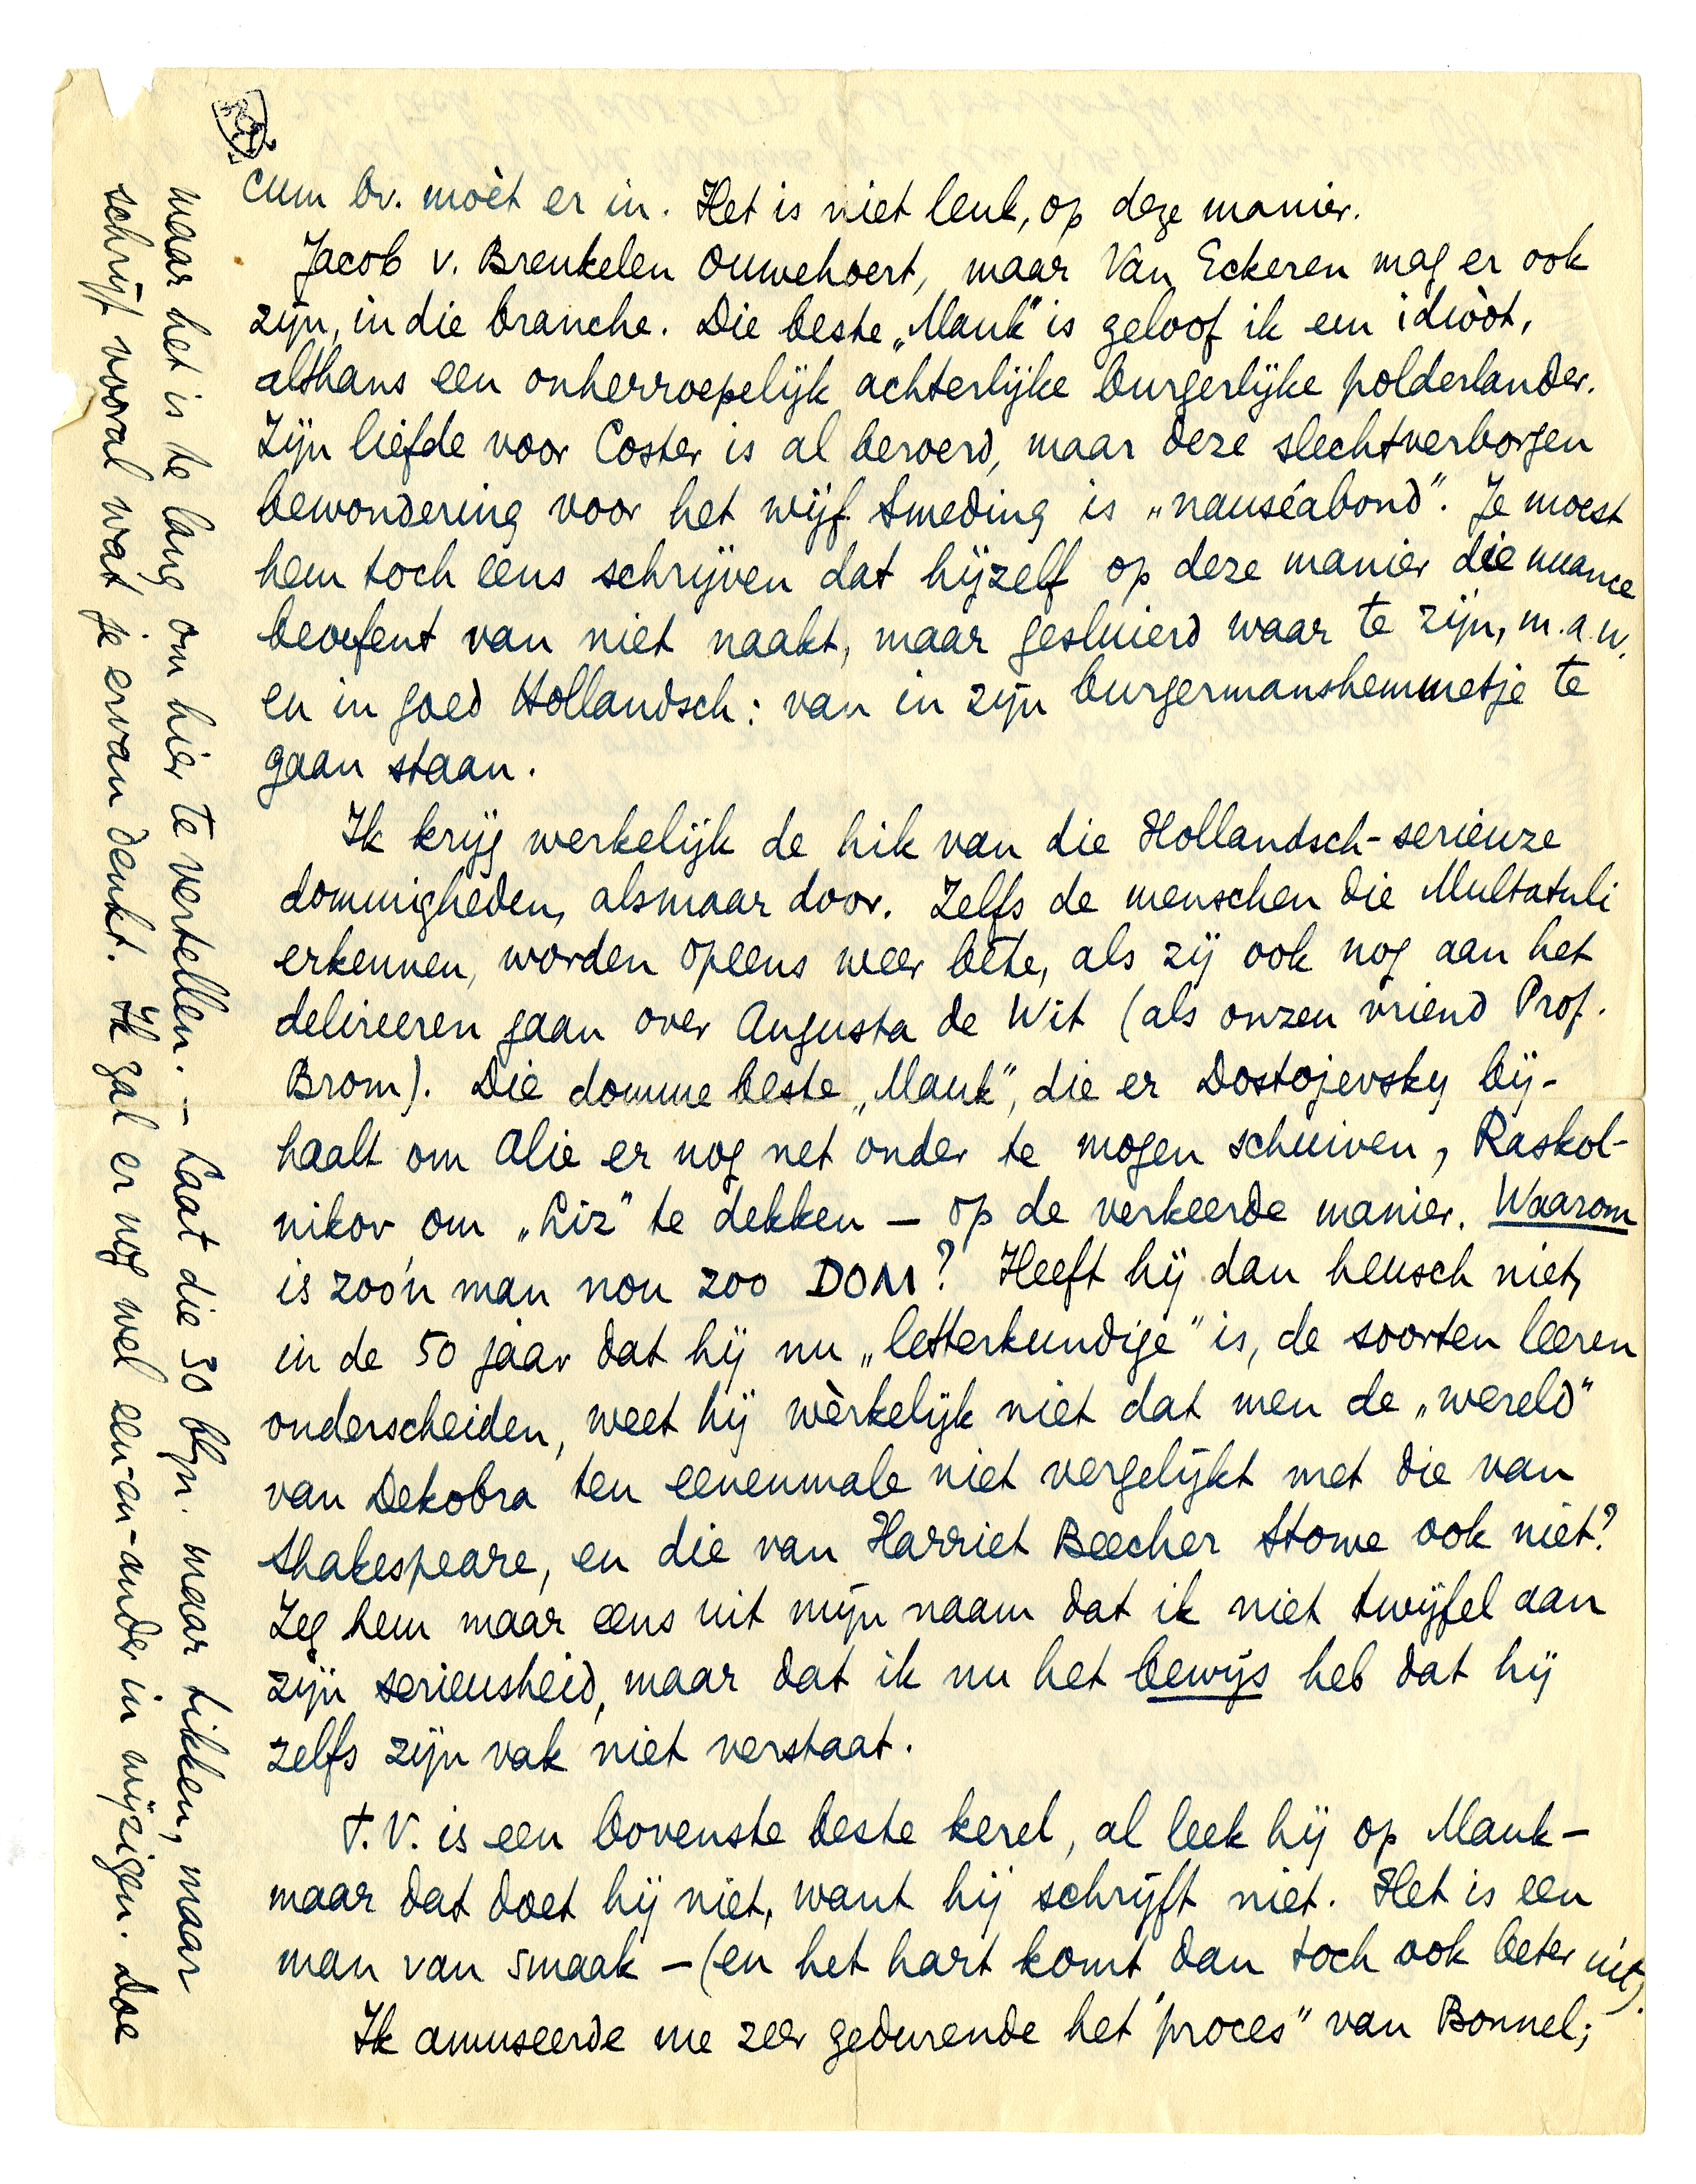 cum Dr. moèt er in. Het is niet leuk, op deze manier.
Jacob v. Breukelen Ouwehoert, maar Van Eckeren mag er ook
zijn, in die branche. Die beste „Mauk" is geloof ik een idiòòt,
althans een onherroepelijk achterlijke burgerlijke polderlander.
Zijn liefde voor Coster is al beroerd, maar deze slechtverborgen
bewondering voor het wijf Smeding is „nauséabond". Je moest
hem toch eens schrijven dat hijzelf op deze manier die nuance
beoefent van niet naakt, maar gesluierd waar te zijn, m.a.w.
en in goed Hollandsch: van in zijn burgermanshemmetje te
gaan staan.
Ik krijg werkelijk de hik van die Hollandsch-serieuze
dommigheden, alsmaar door. Zelfs de menschen die Multatuli
erkennen, worden opeens weer bête, als zij ook nog aan het
delireeren gaan over Augusta de Wit (als onzen vriend Prof.
Brom). Die domme beste „Mauk", die er Dostojevsky bij-
haalt om Alie er nog net onder te mogen schuiven, Raskol-
nikov om „Liz" te dekken – op de verkeerde manier. Waarom
is zoo'n man nou zoo DOM? Heeft hij dan heusch niet,
in de 50 jaar dat hij nu „letterkundige" is, de soorten leeren
onderscheiden, weet hij wèrkelijk niet dat men de „wereld"
van Dekobra ten eenenmale niet vergelijkt met die van
Shakespeare, en die van Harriet Beecher Stowe ook niet?
Zeg hem maar eens uit mijn naam dat ik niet twijfel aan
zijn serieusheid, maar dat ik nu het bewijs heb dat hij
zelfs zijn vak niet verstaat.
T.V. is een bovenste beste kerel, al leek hij op Mauk –
maar dat doet hij niet, want hij schrijft niet. Het is een
man van smaak – (en het hart komt dan toch ook beter uit).
Ik amuseerde me zeer gedurende het "proces" van Bonnel;
maar het is te lang om hier te vertellen. – Laat die 30 blzn. maar tikken, maar
schrijf vooral wat je ervan denkt. Ik zal er nog wel een-en-ander in wijzigen. Doe